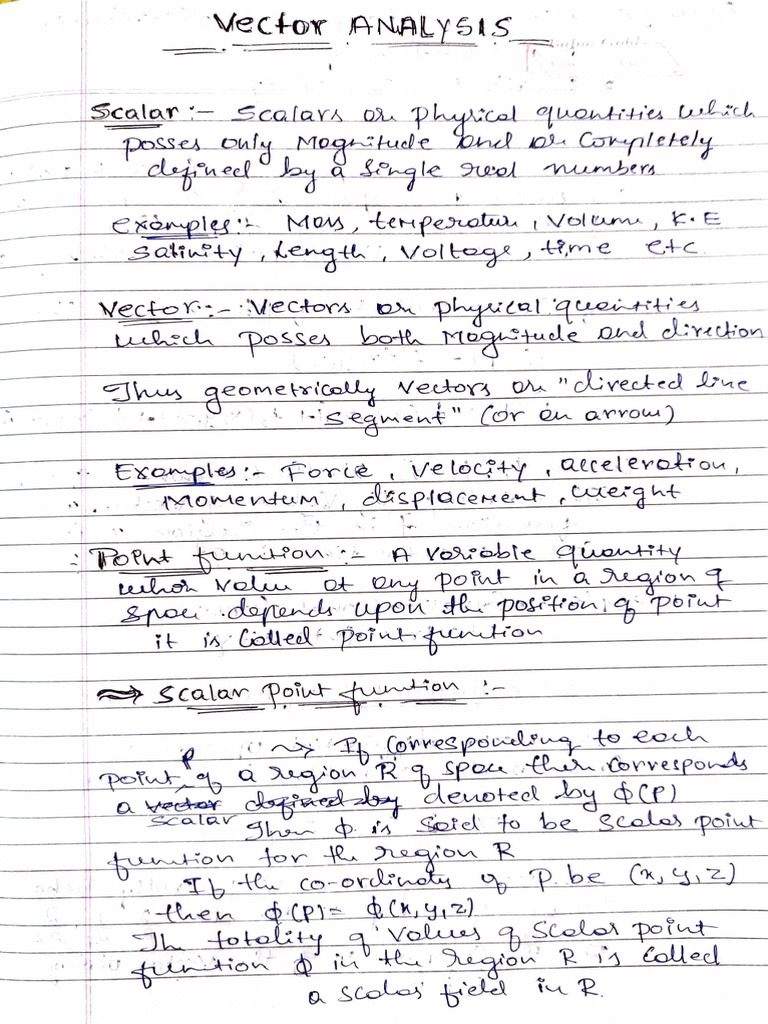 Vector ANALYSIS
Scalar :- Scalars are physical quantities which
posses only Magnitude and are Completely
defined by a single real numbers
Examples :- Mass, temperature, Volume, K.E
Salinity, Length, Voltage, time etc
Vector :- Vectors are physical quantities
which posses both Magnitude and direction
Thus geometrically Vectors are "directed line
segment" (or an arrow)
Examples :- Force, velocity, acceleration,
Momentum, displacement, weight
Point function :- A variable quantity
whose value at any point in a region of
space depends upon the position of point
it is called point function
⇒ Scalar point function :-
~> If corresponding to each
point P of a region R of space there corresponds
a vector defined by denoted by ϕ(P)
scalar Then ϕ is said to be scalar point
function for the region R
If the co-ordinates of P be (x, y, z)
then ϕ(P) = ϕ(x, y, z)
The totality of values of scalar point
function ϕ in the region R is called
a scalar field in R.